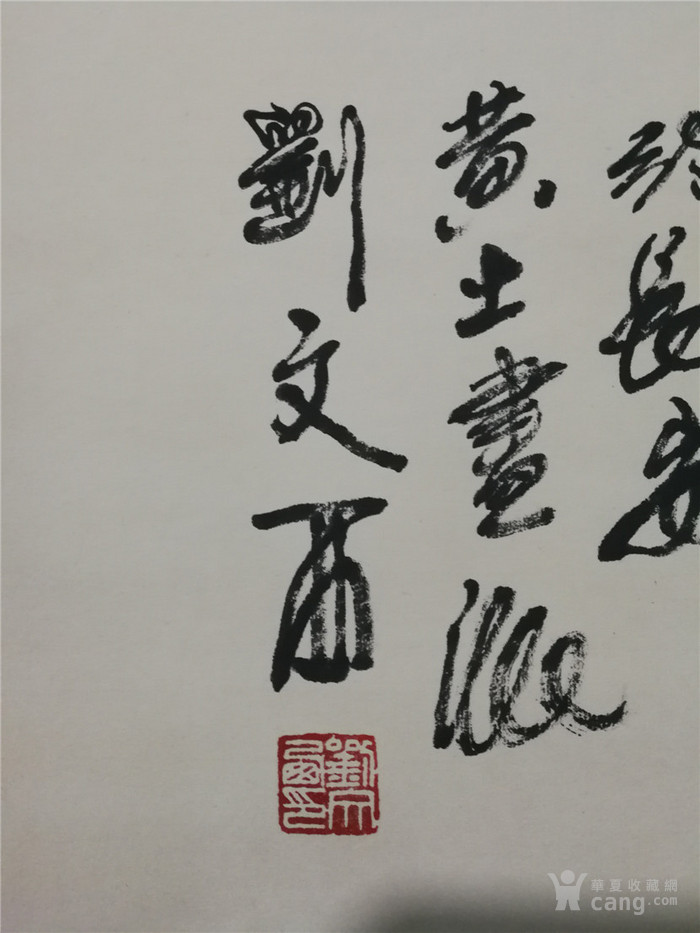 於長安
黄土畫派
劉文西
劉文西印
華夏收藏網
cang.com